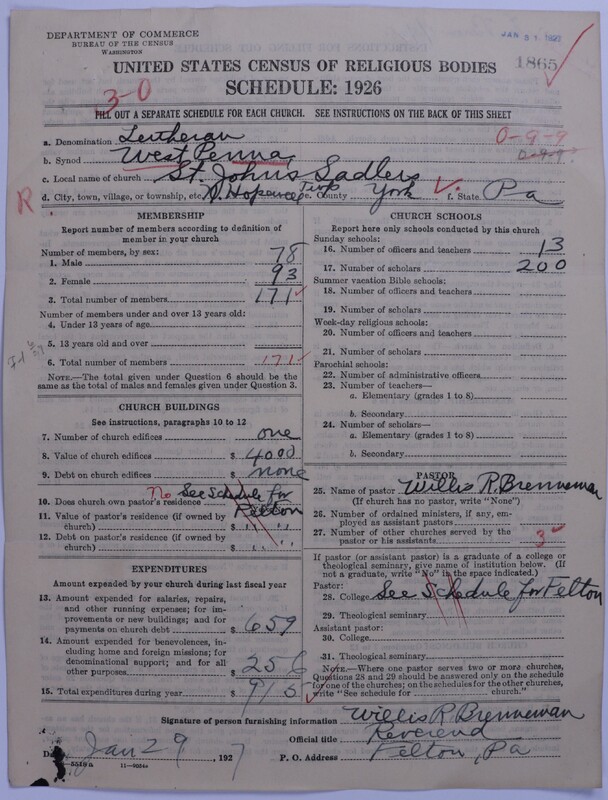 DEPARTMENT OF COMMERCE
BUREAU OF THE CENSUS
WASHINGTON
JAN 31 1927
1865
UNITED STATES CENSUS OF RELIGIOUS BODIES
SCHEDULE: 1926
3-0
FILL OUT A SEPARATE SCHEDULE FOR EACH CHURCH. SEE INSTRUCTIONS ON THE BACK OF THIS SHEET
a. Denomination Lutheran
0-9-9
b. Synod West Penna
0-9-9
c. Local name of church St. Johns Sadlers
R
d. City, town, village, or township, etc. N. Hopewell Twp e. County York f. State Pa
MEMBERSHIP
Report number of members according to definition of member in your church
Number of members, by sex:
1. Male 78
2. Female 93
3. Total number of members 171
Number of members under and over 13 years old:
4. Under 13 years of age
5. 13 years old and over
6. Total number of members 171
NOTE.—The total given under Question 6 should be the same as the total of males and females given under Question 3.
CHURCH BUILDINGS
See instructions, paragraphs 10 to 12
7. Number of church edifices one
8. Value of church edifices $ 4000
9. Debt on church edifices $ none
10. Does church own pastor's residence no See Schedule for Felton
11. Value of pastor's residence (if owned by church) $ " "
12. Debt on pastor's residence (if owned by church) $ " "
EXPENDITURES
Amount expended by your church during last fiscal year
13. Amount expended for salaries, repairs, and other running expenses; for improvements or new buildings; and for payments on church debt $ 659
14. Amount expended for benevolences, including home and foreign missions; for denominational support; and for all other purposes $ 256
15. Total expenditures during year $ 915
CHURCH SCHOOLS
Report here only schools conducted by this church
Sunday schools:
16. Number of officers and teachers 13
17. Number of scholars 200
Summer vacation Bible schools:
18. Number of officers and teachers
19. Number of scholars
Week-day religious schools:
20. Number of officers and teachers
21. Number of scholars
Parochial schools:
22. Number of administrative officers
23. Number of teachers—
a. Elementary (grades 1 to 8)
b. Secondary
24. Number of scholars—
a. Elementary (grades 1 to 8)
b. Secondary
PASTOR
25. Name of pastor Willis R. Brenneman
(If church has no pastor, write "None")
26. Number of ordained ministers, if any, employed as assistant pastors
27. Number of other churches served by the pastor or his assistants 3
If pastor (or assistant pastor) is a graduate of a college or theological seminary, give name of institution below. (If not a graduate, write "No" in the space indicated.)
Pastor:
28. College See Schedule for Felton
29. Theological seminary
Assistant pastor:
30. College
31. Theological seminary
NOTE.—Where one pastor serves two or more churches, Questions 28 and 29 should be answered only on the schedule for one of the churches; on the schedules for the other churches, write "See schedule for church."
Signature of person furnishing information Willis R. Brenneman
Official title Reverend
Jan 29, 1927 P. O. Address Felton, Pa